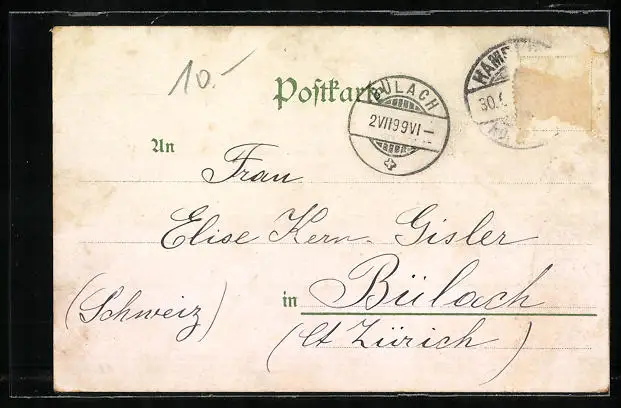 10.-
Postkarte
BÜLACH
2VII99VI-
HAM
30.
An
Frau
Elise Kern-Gisler
in Bülach
(Schweiz)
(Ct Zürich)